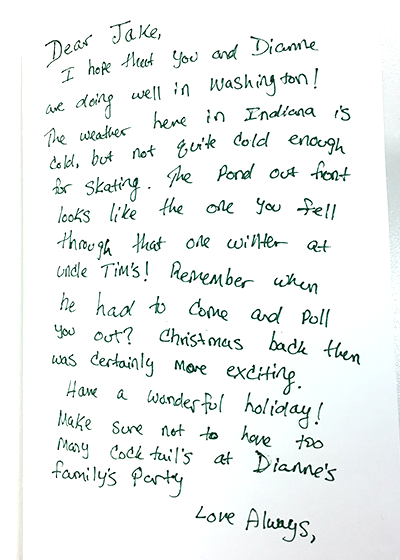 Dear Jake,
I hope that you and Dianne
are doing well in Washington!
The weather here in Indiana is
cold, but not quite cold enough
for skating. The Pond out front
looks like the one you fell
through that one winter at
uncle Tim's! Remember when
he had to come and pull
you out? Christmas back then
was certainly more exciting.
Have a wonderful holiday!
Make sure not to have too
many cocktail's at Dianne's
family's Party
Love Always,